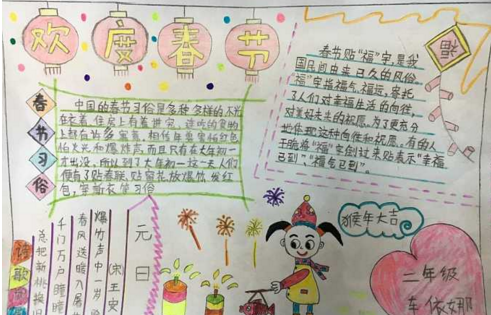 欢度春节
春节习俗
中国的春节习俗是多种多样的不光
在衣着、住房上有着讲究，连吃的食物
上都有
怕火光和爆炸声，而且只有在大年初一
才出没，所以到了大年初一这一天人们
便有了贴春联、贴窗花、放爆竹、发红
包、穿新衣等习俗
春节贴“福”字，是我
国民间由来已久的风俗。
“福”字指福气、福运，寄托
了人们对幸福生活的向往，
对美好未来的祝愿。为了更充分
地体现这种向往和祝愿，有的人
干脆将“福”字倒过来贴表示“幸福
已到”，“福气已到”。
福
诗歌
元日
宋 王安
爆竹声中一岁
春风送暖入屠
千门万户曈曈
总把新桃换旧
猴年大吉
二年级
车依娜